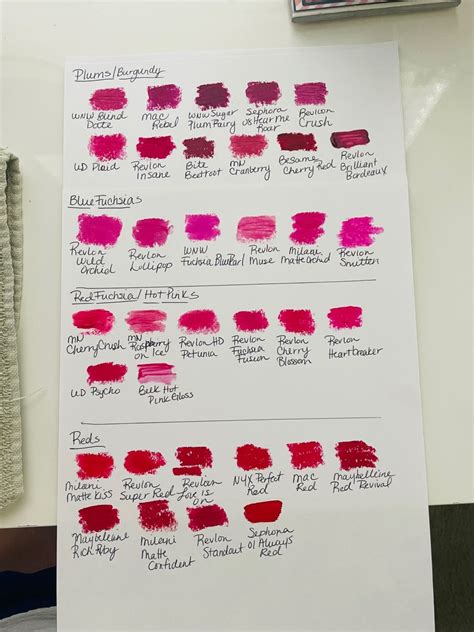 Plums/Burgundy
WNW Blind Date
Mac Rebel
WNW Sugar Plum Fairy
Sephora 08 Hear Me Roar
Revlon Crush
UD Plaid
Revlon Insane
Bite Beetroot
MN Cranberry
Besame Cherry Red
Revlon Brilliant Bordeaux
Blue Fuchsias
Revlon Wild Orchid
Revlon Lollipop
WNW Fuchsia Blue Pearl
Revlon Muse
Milani Matte Orchid
Revlon Smitten
Red Fuchsia/Hot Pinks
MN Cherry Crush
MN Raspberry on Ice
Revlon HD Petunia
Revlon Fuchsia Fusion
Revlon Cherry Blossom
Revlon Heartbreaker
UD Psycho
Belk Hot Pink Gloss
Reds
Milani Matte Kiss
Revlon Super Red
Revlon Love is on
NYX Perfect Red
Mac Red
Maybelline Red Revival
Maybelline Rich Ruby
Milani Matte Confident
Revlon Standout
Sephora 01 Always Red